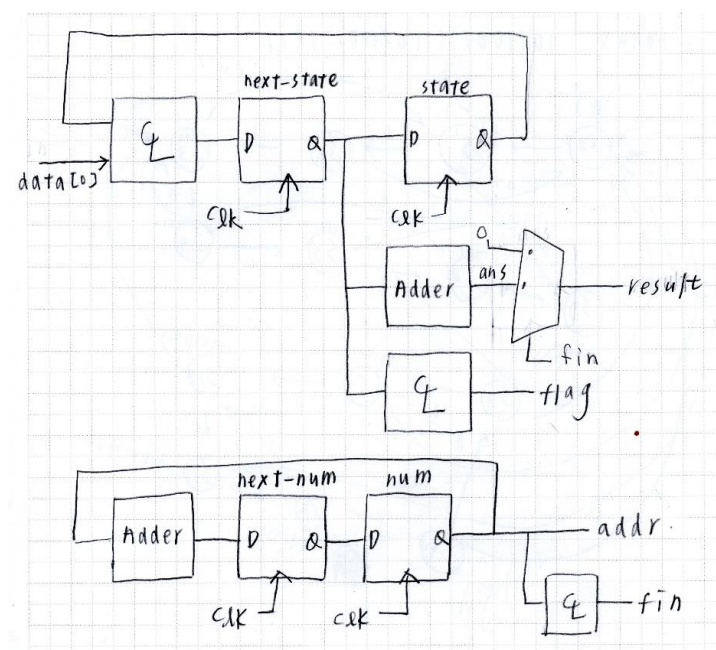 next-state
state
CL
D
Q
D
Q
data[0]
clk
clk
0
0
Adder
ans
1
result
fin
CL
flag
next-num
num
Adder
D
Q
D
Q
addr.
clk
clk
CL
fin